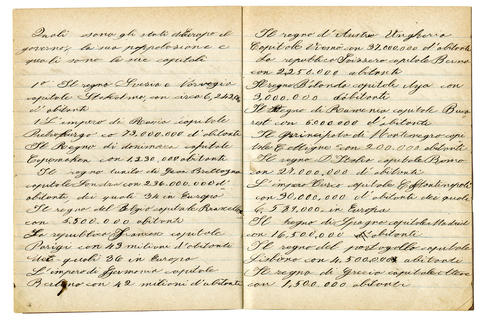 Quali sono gli stati d'europa il
governo, la sua popolazione e
quali sono le sue capitali
1° Il regno Svezia e Norvegia
capitale Stokolmo, con circa 6,242,0
d'abitanti
L'impero di Russia capitale
Pietroburgo co 73,000,000 d'abitanti
Il Regno di danimarca capitale
Copenaken con 1230,000 abitanti
Il regno unito di Gran Brettagna
capitale Londra con 236,000,000 d'
abitanti, dei quali 34 in Europa
Il regno del Belgio capitale Bruxelles
con 5,500,000 abitanti
La republica Francese capitale
Parigi con 43 milioni d'abitanti
dei quali 36 in Europa
L'impero di Germania capitale
Berlino con 42 milioni d'abitanti
Il regno d'Austro Ungheria
Capitale Vienna con 37,000,000 d'abitanti
La republica Svizzera capitale Berna
con 2,250,000 abitanti
Il regno d'Olanda capitale Aya con
3,000,000 d'abitanti
Il Regno di Rumenia capitale Buca
rest con 5000,000 d'abitanti
Il Principato di Montenegro capi
tale Cettigne con 200,000 abitanti
Il regno D'Italia capitale Roma
con 27,000,000 d'abitanti
L'impero Turco capitale Costantinopoli
con 30,000,000 d'abitanti dei quali
6,525,000 in Europa
Il regno di Spagna capitale Madrid
con 16,500,000 d'abitanti
Il regno del portogallo capitale
Lisbona con 4,500,000 abitanti
Il regno di Grecia capitale Atene
con 1,500,000 abitanti